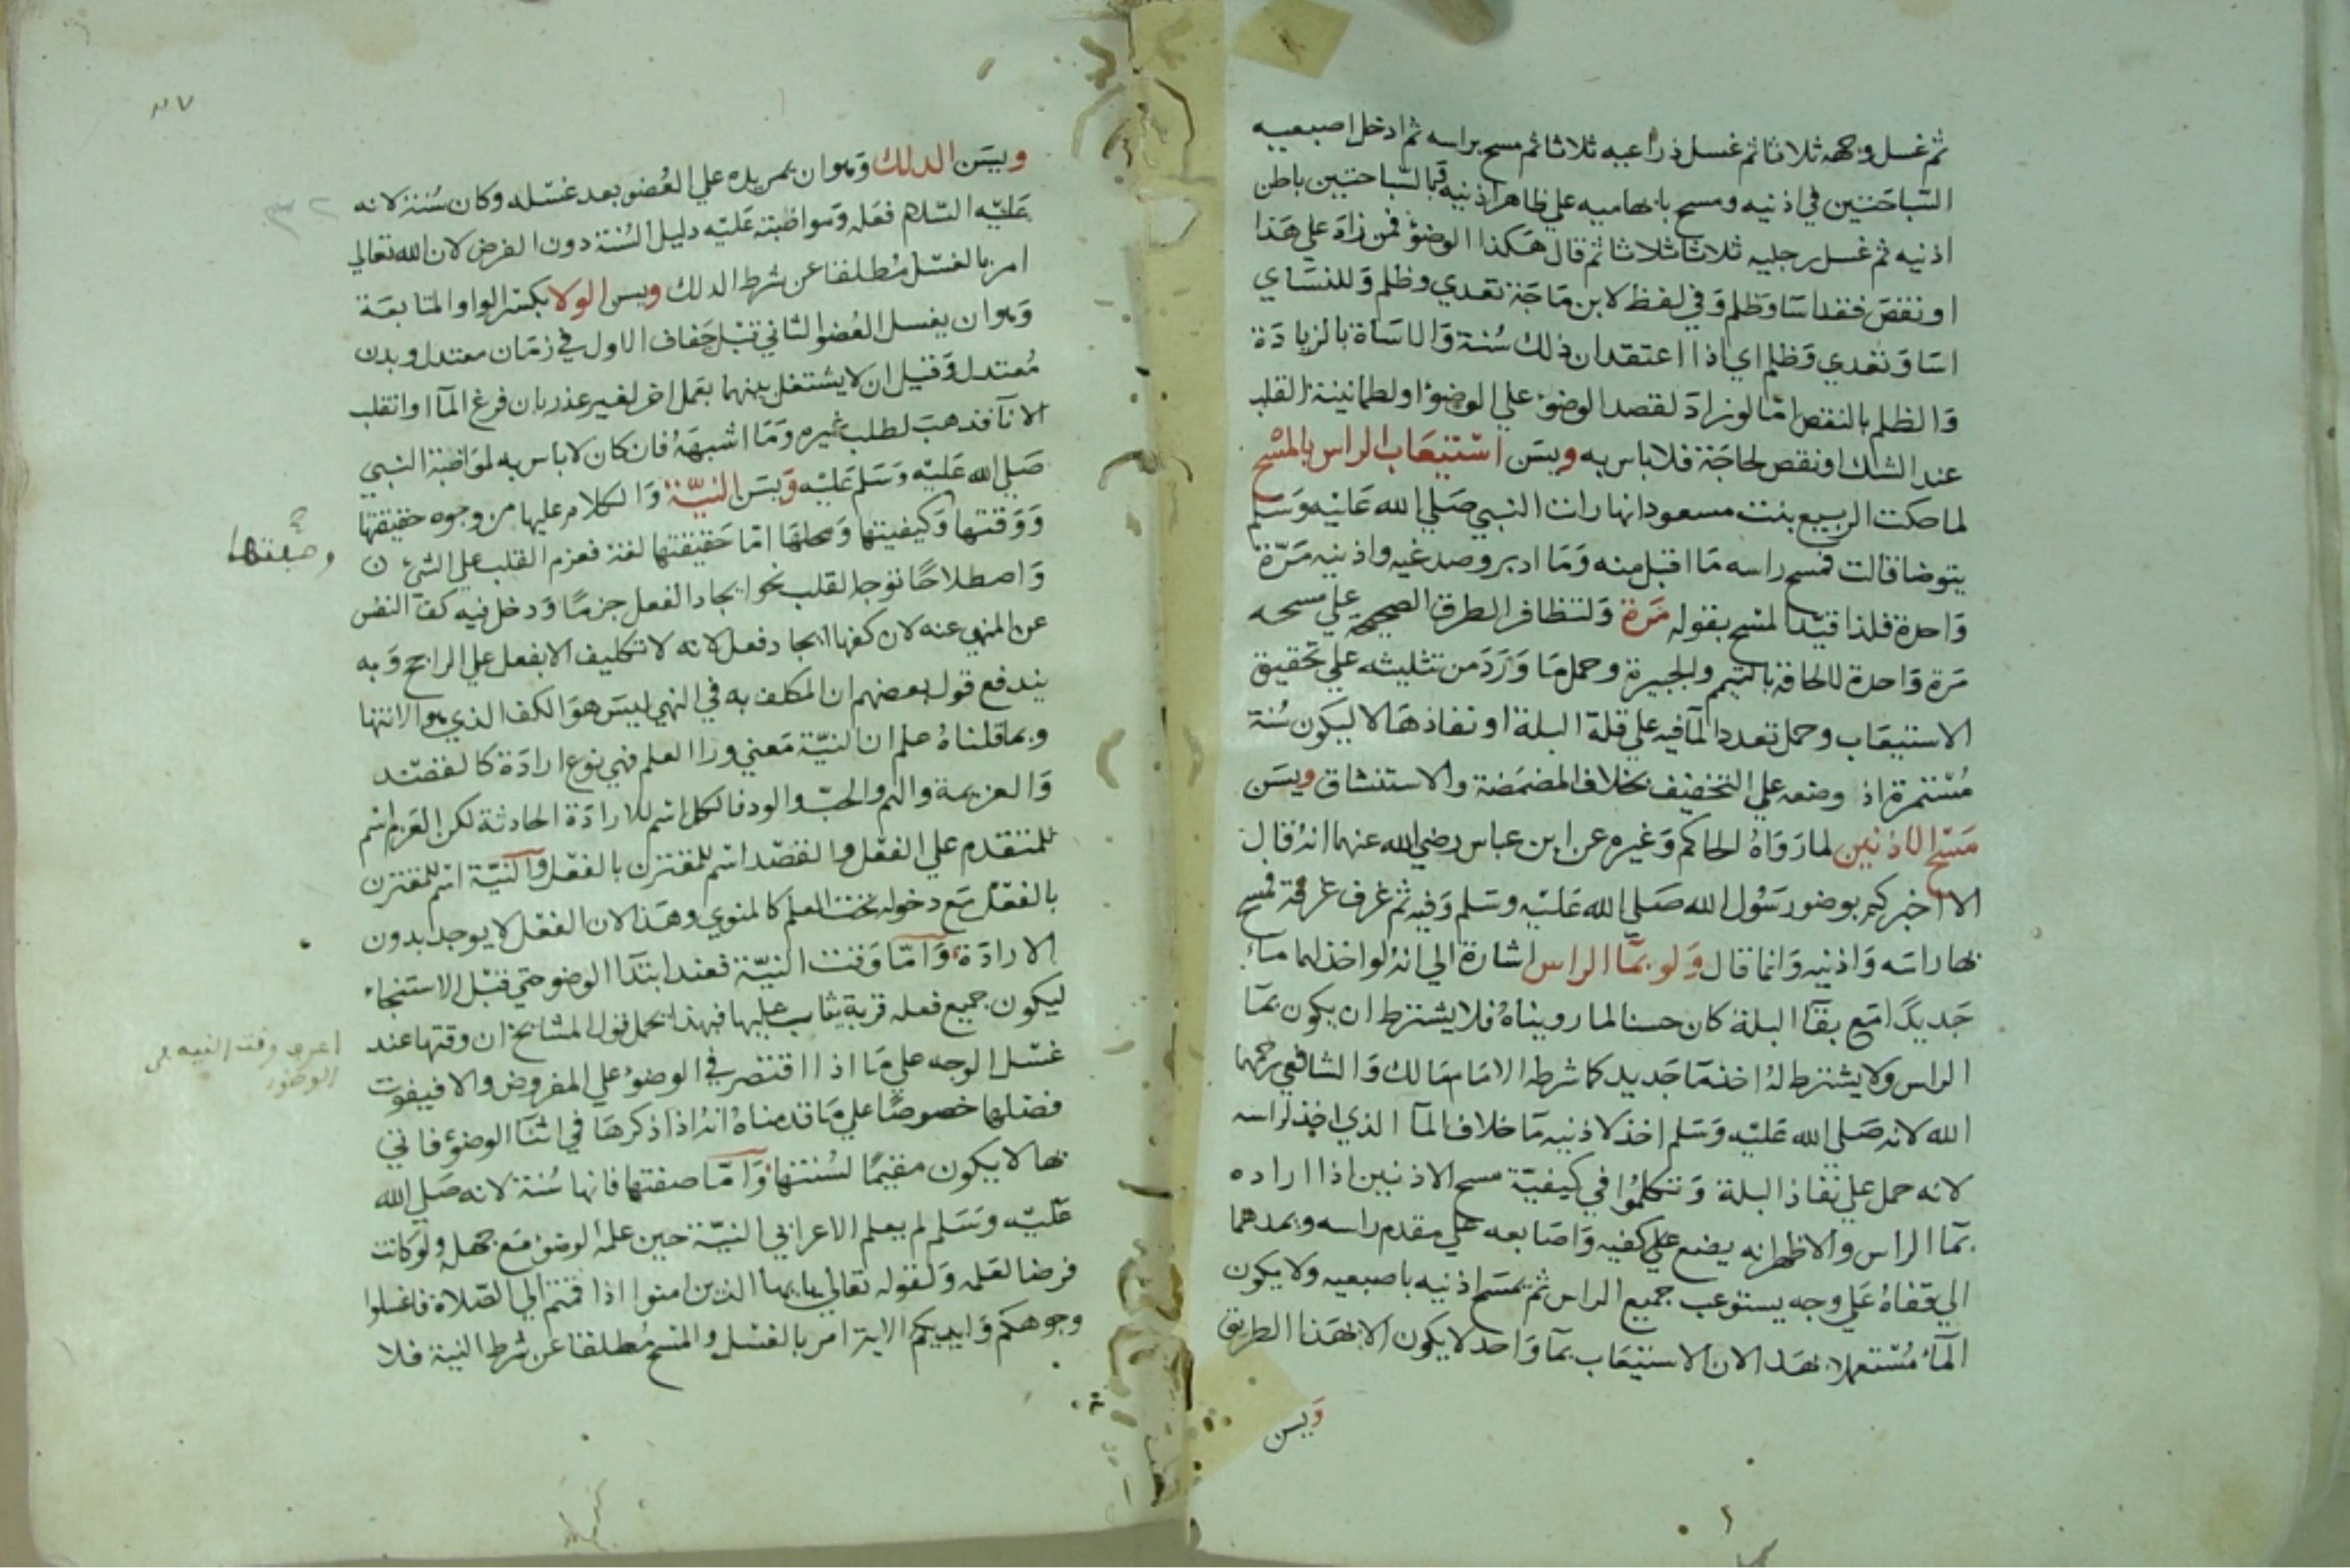 ثم غسل وجهه ثلاثا ثم غسل ذراعيه ثلاثا ثم مسح براسه ثم ادخل اصبعيه
السّباحتين في اذنيه ومسح بابهاميه علي ظاهر اذنيه وبالسّباحتين باطن
اذنيه ثم غسل رجليه ثلاثا ثلاثا ثم قال هكذا الوضؤ فمن زاد علي هذا
او نقص فقد اسا وظلم وفي لفظ لابن ماجة تعدي وظلم وللنساي
اسا وتعدي وظلم اي اذا اعتقد ان ذلك سُنة والاساة بالزيادة
والظلم بالنقص امّا لو زاد لقصد الوضوء علي الوضؤ او لطمانينة القلب
عند الشك او نقص لحاجة فلا باس به ويسَن استيعاب الراس بالمسْح
لما حكت الربيع بنت مسعود انها رات النبي صَلي الله عَليه وسَلم
يتوضا قالت فمسح راسه مَا اقبل منه ومَا ادبر وصدغيه واذنيه مَرّة
واحدة فلذا قيّد المسْح بقوله مَرة ولتظافر الطرق الصحيحة علي مسحه
مَرة واحدة للالحاقه بالتيمم والجبيرة وحمل مَا ورَدَ من تثليثه علي تحقيق
الاستيعاب وحمل تعدد المآ فيه علي قلة البلة او نفاذها لا ليكون سُنة
مُستمرة اذ وضعه علي التخفيف بخلاف المضمضة والاستنشاق ويسَن
مَسْح الاذنين لما رَوَاهُ الحاكم وغيره عن ابن عباس رضي الله عنهما انهُ قال
الا اخبركم بوضو رسُول الله صَلي الله عَليْه وسَلم وفيه ثم غرف غرفة فمسح
بها راسَه واذنيه وانما قال وَلو بمَا الراس اشارة الي انهُ لو اخذ لهما ماءً
جَديدًا مَع بقآ البلة كان حسنا لما رويناهُ فلا يشترط ان يكون بمآ
الراس ولا يشترط لهُ اخذ مَا جَديد كما شرطه الامام مَالك والشافعي رحمهما
الله لانه صَلي الله عَليْه وسَلم اخذ لاذنيه مَا خلاف المآ الذي اخذ لراسه
لانه حمل علي نفاذ البلة وتكلموُا في كيفيّة مسح الاذنين اذا اراده
بمَا الراس والاظهر انه يضع علي كفيه واصَابعه علي مقدم راسه وبمدهما
الي قفاهُ عَلي وجه يستوعب جميع الراس ثم يمسَح اذنيه باصبعيه ولا يكون
المآء مُسْتعملا بهذا لان الاستيعاب بمآ واحد لا يكون الا بهَذا الطريق
وَيسن
٣٧
٣٢
ويسَن الدلك وهوان يمر يده علي العُضو بعد غسْله وكان سُنة لانه
عَليْه السّلام فعَله ومواظبته عَليْه دليل السُنة دون الفرض لان الله تعالي
امر بالغسْل مُطلقا عن شرط الدلك ويسن الولا بكسْر الواو المتابعَة
وهوان يغسل العُضو الثاني قبْل جَفاف الاول في زمَان معتدل وبدن
مُعتدل وقيل ان لا يشتغل بينهما بعَمل اخر لغير عذر بان فرغ المآ او انقلب
الانآ فذهبَ لطلب غيره ومَا اشبهَهُ فان كان لا باس به لمواظبة النبي
صَلي الله عَليْه وسَلم عَليْه وَيسَن النيّة والكلام عليها من وجوه حقيقتها
وَوقتها وكيفيتها وَمحلها امّا حَقيقتها لغة فعزم القلب علي الشيء
واصطلاحًا توجه القلب نحو ايجاد الفعل جزمًا ودخل فيه كف النفس
عن المنهي عنه لان كفها ايجاد فعل لانه لا تكليف الا بفعل علي الراجح وبه
يندفع قول بعضهم ان المكلف به في النهي ليسَ هوَ الكف الذي هو الانتها
وبما قلناهُ علم ان النيّة مَعني ورا العلم فهي نوع ارادَة كالقصْد
والعزيمة والهم والحبّ والود فالكل اسْم للارادَة الحادثة لكن العَزم اسْم
للمتقدم علي الفعْل والقصْد اسْم للمقترن بالفعْل والنيّة اسْم للمقترن
بالفعْل مَع دخوله تحت العلم كالمنوي وهَذا لان الفعْل لا يوجد بدون
الارادَة وَامّا وَقت النيّة فعند ابتدآ الوضو حتي قبْل الاستنجاء
ليكون جميع فعله قربة يثاب عليها فبهذا يحمل قول المشايخ ان وقتها عند
غسْل الوجه علي مَا اذا اقتصَر في الوضوء علي المفروض والا فيفوت
فضلها خصوصًا علي مَا قدمناهُ انهُ اذا ذكرهَا في اثنآ الوضؤ فاتي
بها لا يكون مقيمًا لسُنتها وَامّا صفتها فانها سُنة لانه صَلي الله
عَليْه وسَلم لم يعلم الاعرابي النيّة حين علمهُ الوضؤ مَع جهله ولو كانت
فرضا لعَلمه وَلقوله تعالي يا ايها الذين امنوا اذا قمتم الي الصّلاة فاغسلوا
وجوهكم وَايديكم الاية امر بالغسْل والمسْح مُطلقا عن شرط النية فلا
وصفتها
اعرف وقت النيه في
الوضؤ